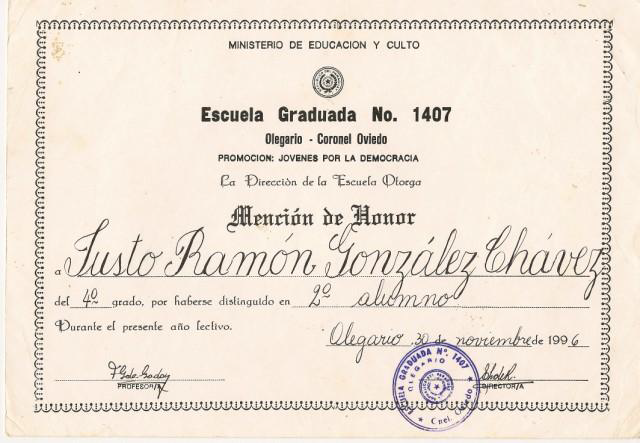 MINISTERIO DE EDUCACION Y CULTO
Escuela Graduada No. 1407
Olegario - Coronel Oviedo
PROMOCION: JOVENES POR LA DEMOCRACIA
La Dirección de la Escuela Otorga
Mención de Honor
a Justo Ramón González Chávez
del 4º grado, por haberse distinguido en 2º alumno
Durante el presente año lectivo.
Olegario, 30 de noviembre de 1996
PROFESOR/A
DIRECTOR/A
ESCUELA GRADUADA Nº. 1407
OLEGARIO
Cnel. Oviedo